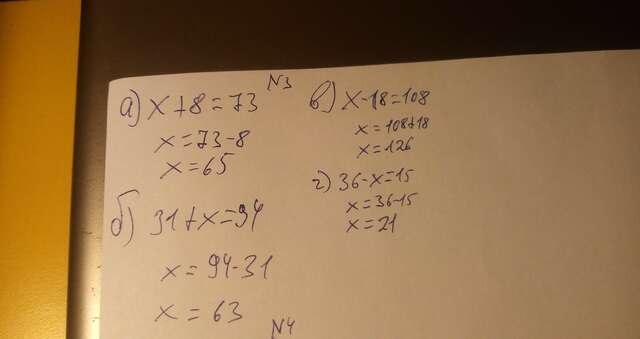 N3
а) x+8=73
x=73-8
x=65
б) 31+x=94
x=94-31
x=63
в) x-18=108
x=108+18
x=126
г) 36-x=15
x=36-15
x=21
N4